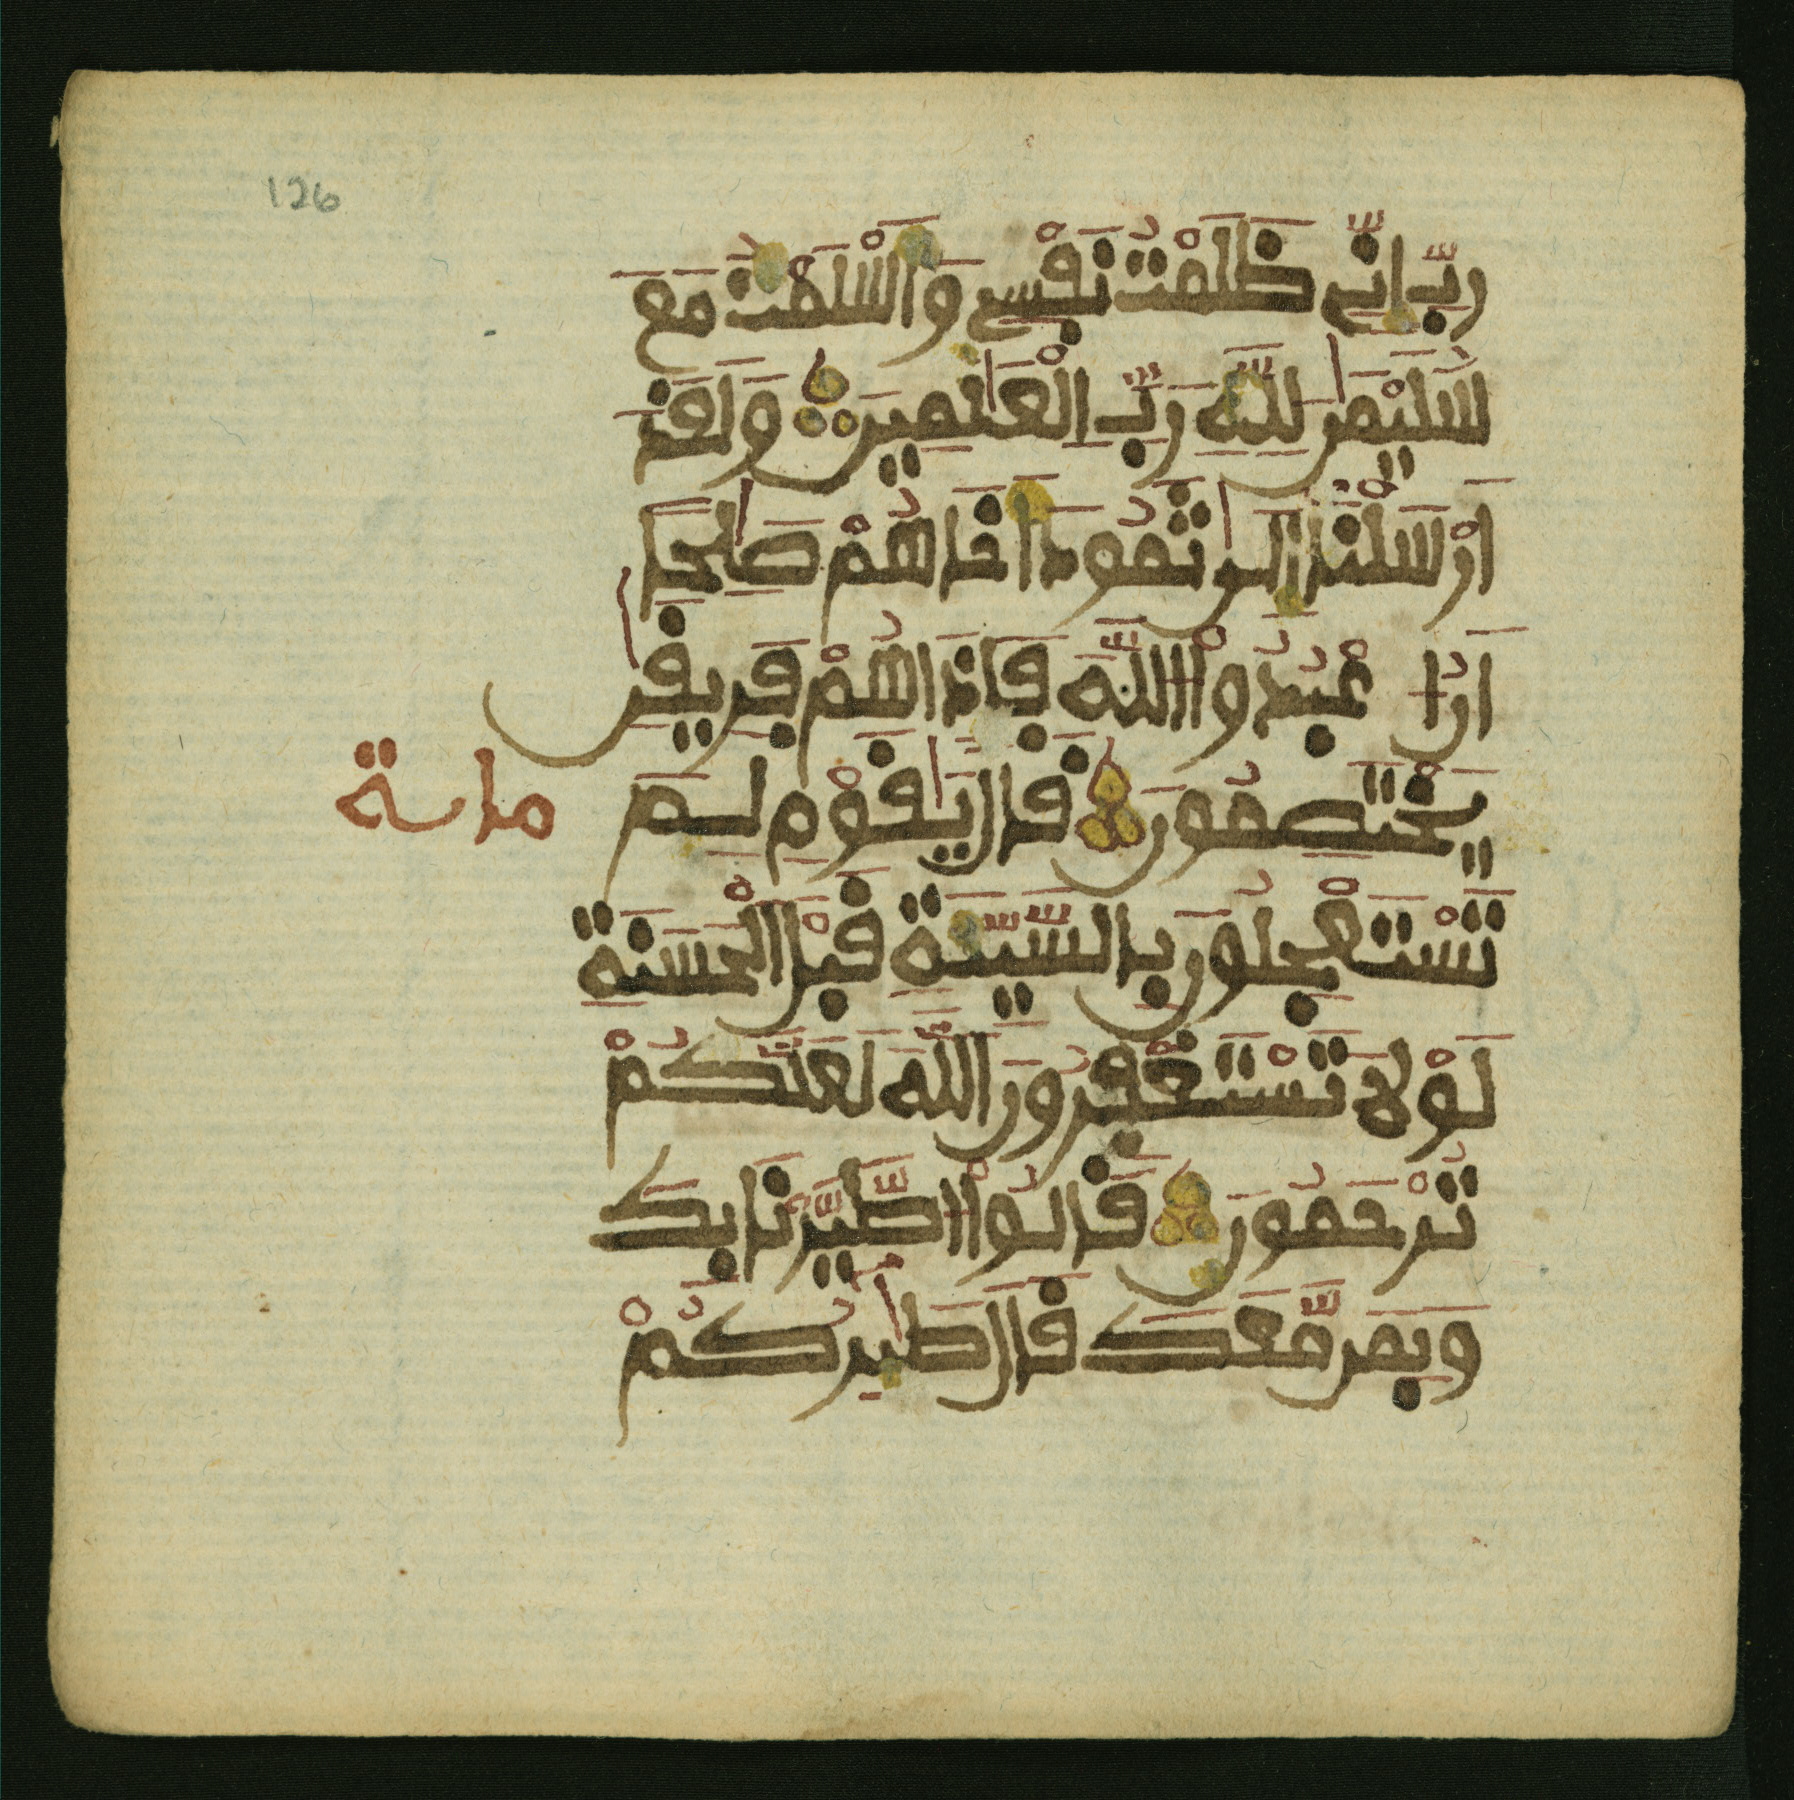 126
رَبِّ إِنِّي ظَلَمْتُ نَفْسِي وَأَسْلَمْتُ مَعَ
سُلَيْمَٰنَ لِلَّهِ رَبِّ الْعَٰلَمِينَ وَلَقَدَ
اَرْسَلْنَا إِلَىٰ ثَمُودَ أَخَاهُمْ صَٰلِحًا
اَنُ اعْبُدُواْ اللَّهَ فَإِذَا هُمْ فَرِيقَٰنِ
يَخْتَصِمُونَ قَالَ يَٰقَوْمِ لِمَ
تَسْتَعْجِلُونَ بِالسَّيِّئَةِ قَبْلَ الْحَسَنَةِ
لَوْلَا تَسْتَغْفِرُونَ اللَّهَ لَعَلَّكُمْ
تُرْحَمُونَ قَالُواْ اطَّيَّرْنَا بِكَ
وَبِمَن مَّعَكَ قَالَ طَٰئِرُكُمْ